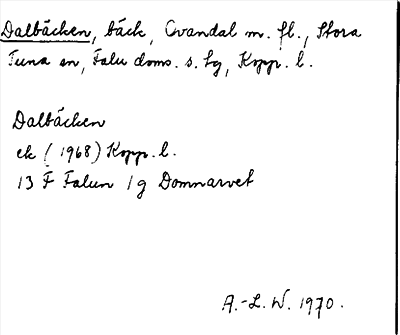 Dalbäcken, bäck, Ovandal m. fl., Stora
Tuna sn, Falu doms. s. lg, Kopp. l.
Dalbäcken
ek (1968) Kopp. l.
13 F Falun 1g Domnarvet
A.-L. W. 1970.